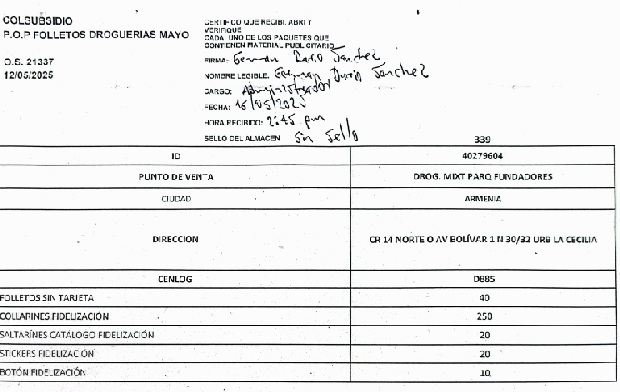 COLSUBSIDIO
P.O.P FOLLETOS DROGUERIAS MAYO
O.S. 21337
12/05/2025
CERTIFICO QUE RECIBI, ABRI Y
VERIFIQUE
CADA UNO DE LOS PAQUETES QUE
CONTIENEN MATERIAL PUBLICITARIO
FIRMA: German Dario Sanchez
NOMBRE LEGIBLE: German Dario Sanchez
CARGO: Administrador
FECHA: 16/05/2025
HORA RECIBIDO: 2:45 pm
SELLO DEL ALMACEN Sin Sello
339
ID 40279604
PUNTO DE VENTA DROG. MIXT PARQ FUNDADORES
CIUDAD ARMENIA
DIRECCION CR 14 NORTE O AV BOLÍVAR 1 N 30/33 URB LA CECILIA
CENLOG D885
FOLLETOS SIN TARJETA 40
COLLARINES FIDELIZACIÓN 250
SALTARÍNES CATÁLOGO FIDELIZACIÓN 20
STICKERS FIDELIZACIÓN 20
BOTÓN FIDELIZACIÓN 10